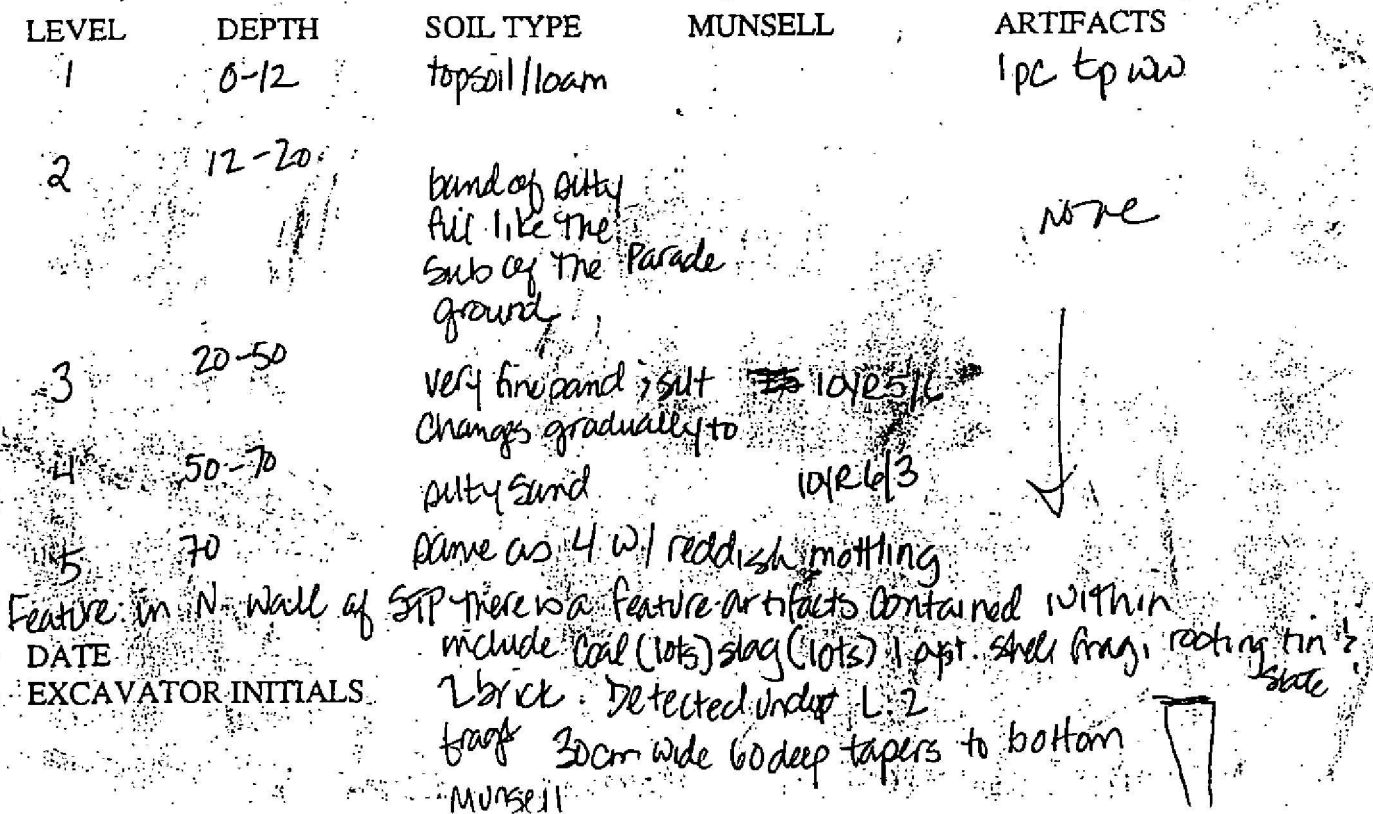 LEVEL DEPTH SOIL TYPE MUNSELL ARTIFACTS
1 0-12 topsoil/loam 1 pc tp ww
2 12-20 band of silty none
fill like the
sub of the Parade
ground
3 20-50 very fine sand; silt 10YR5/6
changes gradually to
4 50-70 silty sand 10YR6/3
5 70 same as 4 w/ reddish mottling
Feature: in N. wall of STP there is a feature artifacts contained within
include coal (lots) slag (lots) 1 shell frag, roofing tin ?
slate
DATE
EXCAVATOR INITIALS 2 brick. Detected under L. 2
frags 30cm wide 60 deep tapers to bottom
Munsell